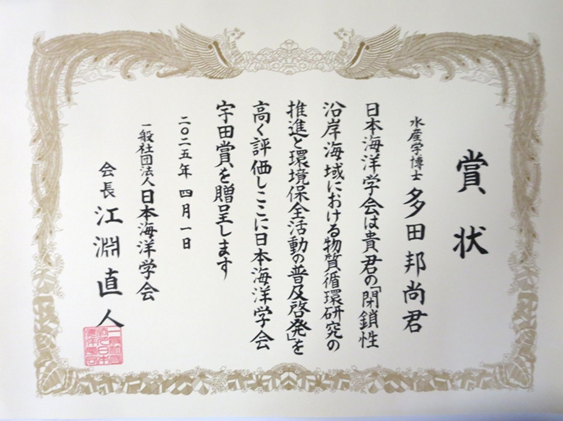 賞状
水産学博士 多田邦尚君
日本海洋学会は貴君の「閉鎖性
沿岸海域における物質循環研究の
推進と環境保全活動の普及啓発」を
高く評価しここに日本海洋学会
宇田賞を贈呈します
二〇二五年 四月一日
一般社団法人日本海洋学会
会長 江淵直人